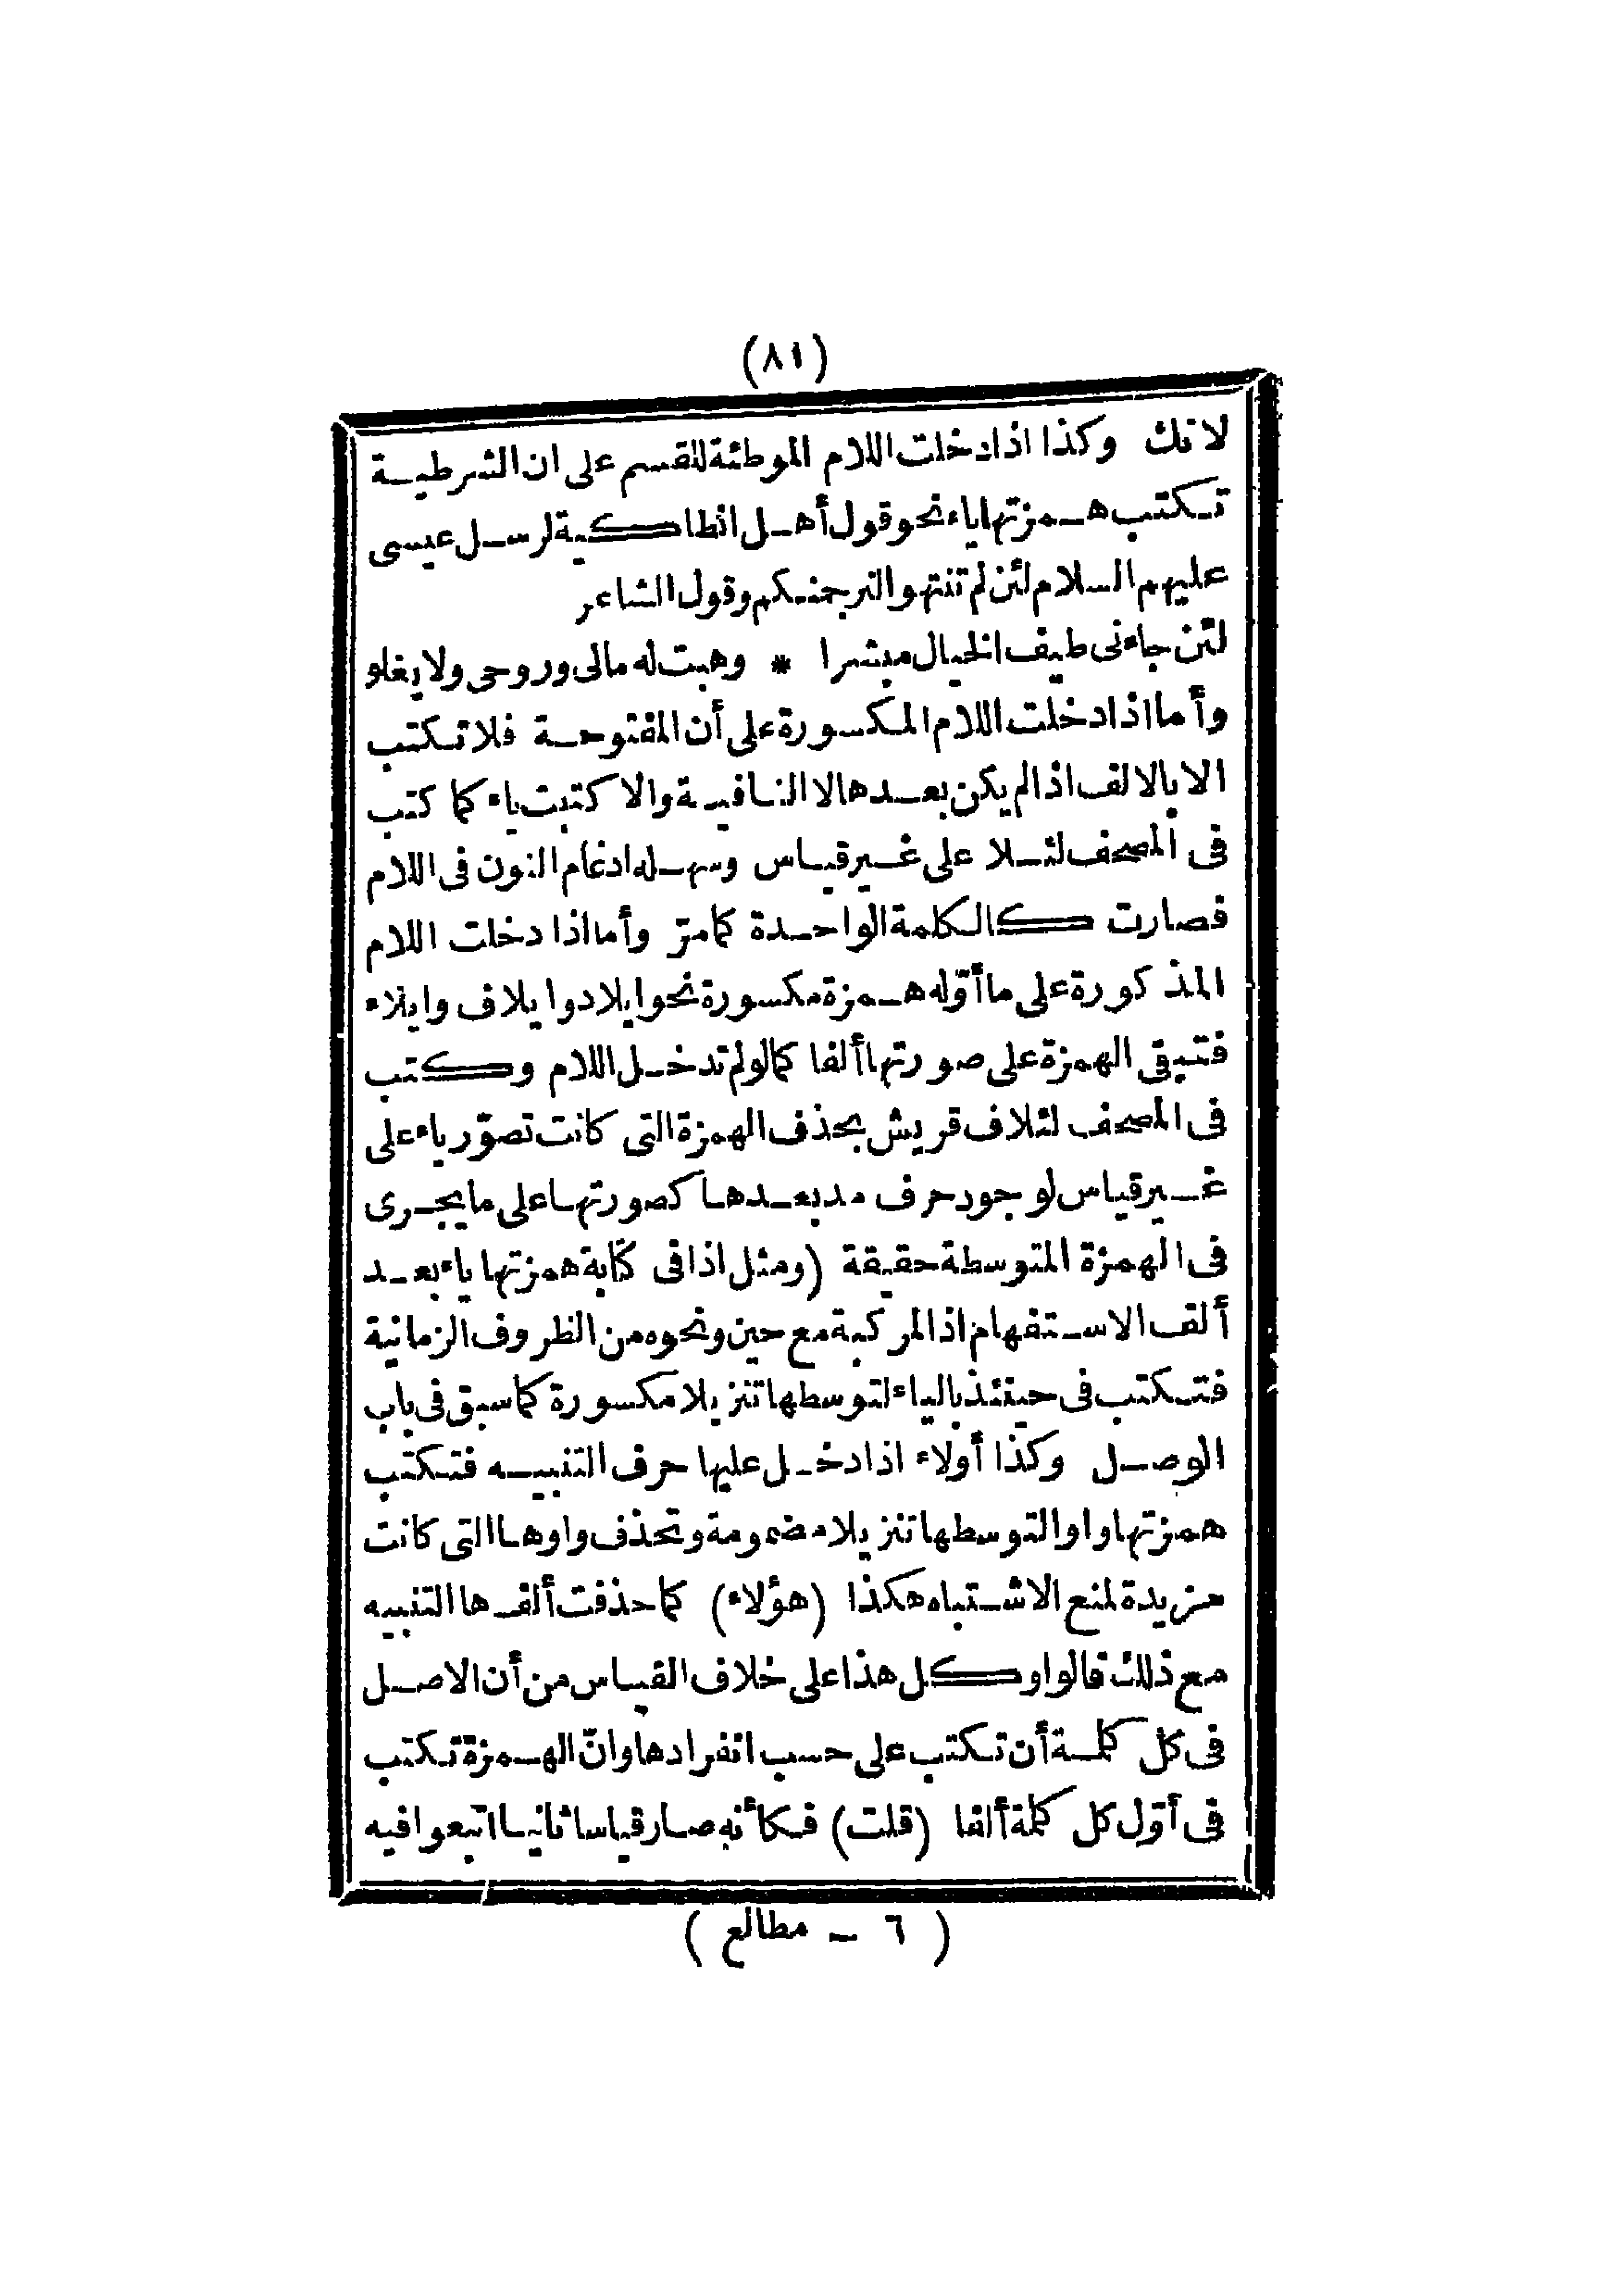 (٨١)
لانك وكذا اذا دخلت اللام الموطئة للقسم على ان الشرطية
تكتب همزتها ياء نحو قول أهل انطاكية لرسل عيسى
عليهم السلام لئن لم تنتهوا لنرجمنكم وقول الشاعر
لئن جاءنى طيف الخيال مبشرا * وهبت له مالى وروحى ولا يغلو
وأما اذا دخلت اللام المكسورة على أن المفتوحة فلا تكتب
الا بالالف اذا لم يكن بعدها لا النافية والا كتبت ياء كما كتب
فى المصحف لئلا على غير قياس وسهله ادغام النون فى اللام
فصارت كالكلمة الواحدة كما مرّ وأما اذا دخلت اللام
المذكورة على ما أوّله همزة مكسورة نحو ايلاد وايلاف وايلاء
فتبقى الهمزة على صورتها ألفا كما لو لم تدخل اللام وكتب
فى المصحف لئلاف قريش بحذف الهمزة التى كانت تصوّر ياء على
غير قياس لوجود حرف مد بعدها كصورتها على ما يجرى
فى الهمزة المتوسطة حقيقة (ومثل اذا فى كتابة همزتها ياء بعد
ألف الاستفهام اذ المركبة مع حين ونحوه من الظروف الزمانية
فتكتب فى حينئذ بالياء لتوسطها تنزيلا مكسورة كما سبق فى باب
الوصل وكذا أولاء اذا دخل عليها حرف التنبيه فتكتب
همزتها واوا لتوسطها تنزيلا مضمومة وتحذف واوها التى كانت
مزيدة لمنع الاشتباه هكذا (هؤلاء) كما حذفت ألف ها التنبيه
مع ذلك قالوا وكل هذا على خلاف القياس من أن الاصل
فى كل كلمة أن تكتب على حسب انفرادها وانّ الهمزة تكتب
فى أوّل كل كلمة ألفا (قلت) فكأنه صار قياسا ثانيا اتبعوا فيه
(٦ - مطالع)